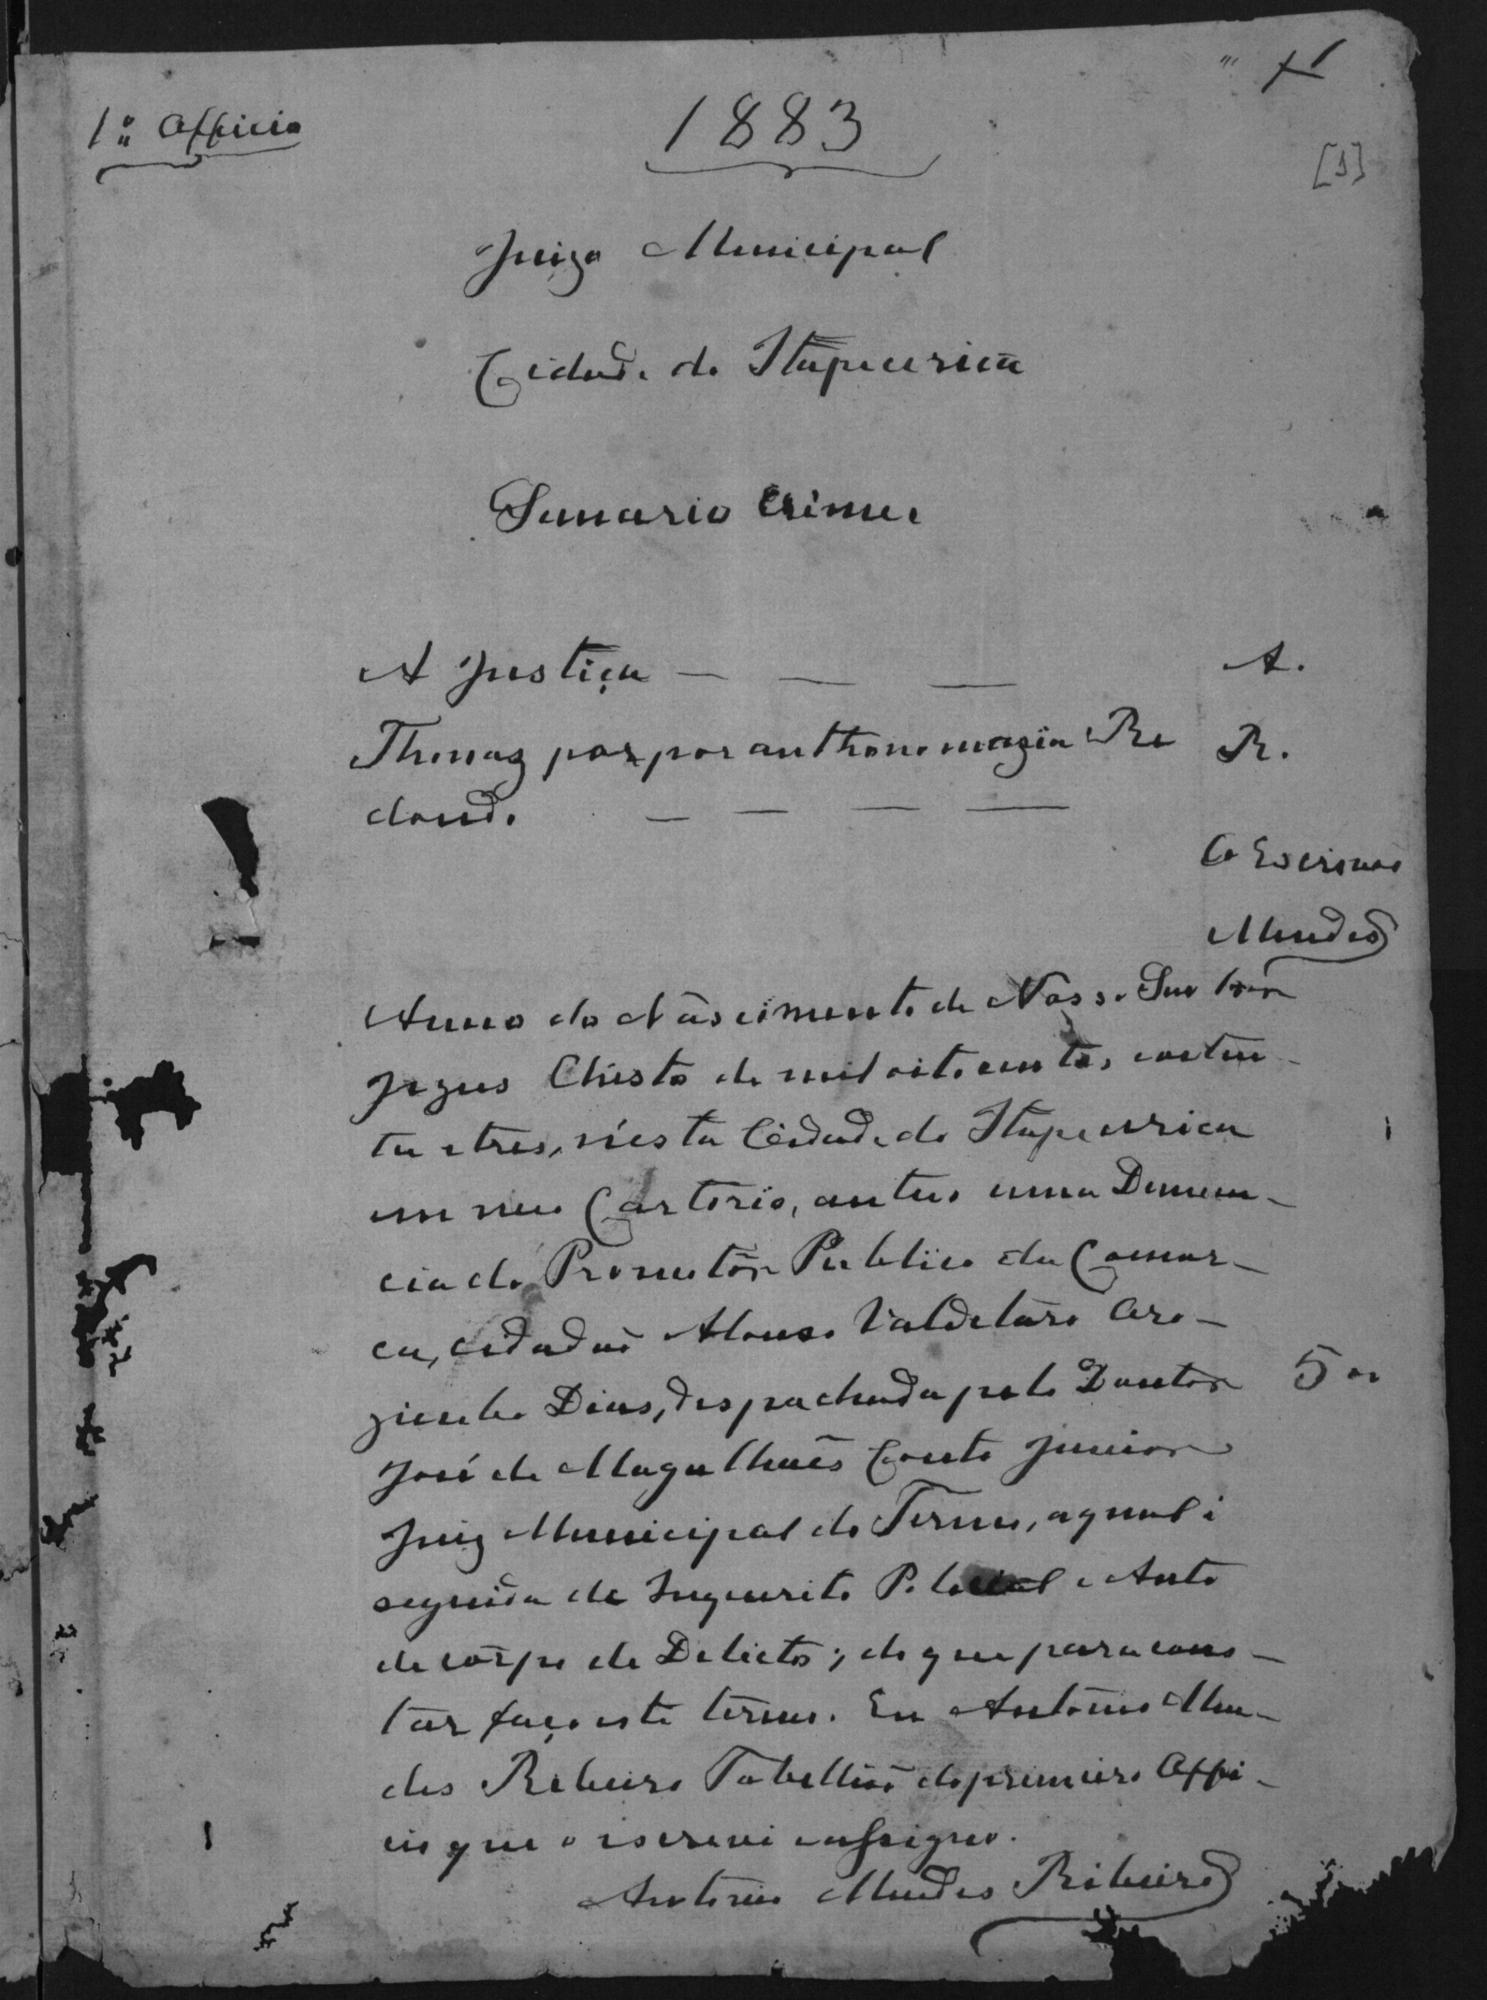 1º Officio
1883
[1]
Juizo Municipal
Cidade de Itapecerica
Sumario Crime
A Justiça — — — A.
Thomaz por antonomazia Re R.
dondo — — —
O Escrivão
Mendes
Anno do Nascimento de Nosso Senhor
Jezus Christo de mil oitocentos, e oiten-
ta e tres, n'esta Cidade de Itapecerica
em meu Cartorio, autuo uma Denun-
cia do Promotor Publico da Comar-
ca, cidadão Alonso Valdetaro
Dias, despachada pelo Doutor
José de Magalhães Couto Junior
Juiz Municipal do Termo, a qual é
seguida de Inquerito Policial e Auto
de corpo de Delicto; do que para cons-
tar faço este termo. Eu Antonio Men-
des Ribeiro Tabellião do primeiro Offi-
cio que o escrevi e assigno.
Antonio Mendes Ribeiro